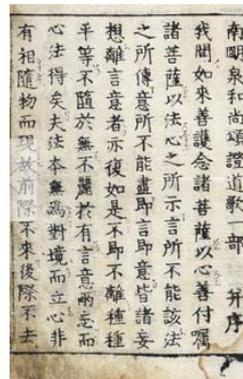 南明泉和尚頌證道歌一部 并序
我聞如來善護念諸菩薩以心善付囑
諸菩薩以法心之所示言所不能該法
之所傳意所不能盡即言即意皆諸妄
想離言意者亦復如是不即不離種種
平等不隨於無不麗於有言意兩忘而
心法得矣夫法本無為對境而立心非
有相隨物而現故前際不來後際不去